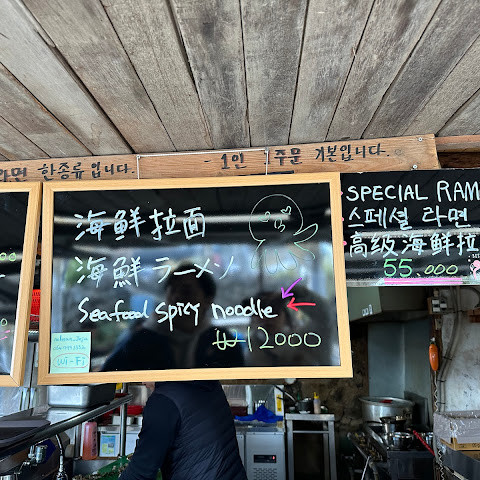 라면 한종류입니다.
- 1인 1주문 기본입니다.
海鮮拉面
海鮮 ラーメン
Seafood spicy noodle
₩12000
(Wi-Fi)
SPECIAL RAM
스페셜 라면
高級海鮮拉
55.000